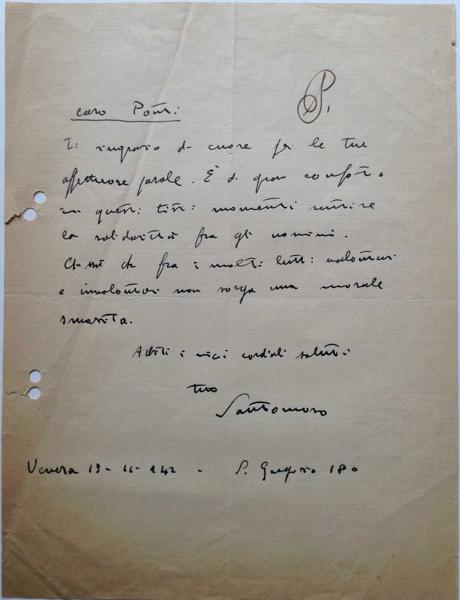 P.
caro Ponti
Ti ringrazio di cuore per le tue
affettuose parole. È di gran conforto
in questi tristi momenti sentire
la solidarietà fra gli uomini.
Chissà che fra i molti lutti volontari
e involontari non sorga una morale
smarrita.
Abiti i miei cordiali saluti
tuo
Santomaso
Venezia 19-11-942 - S. Gregorio 180